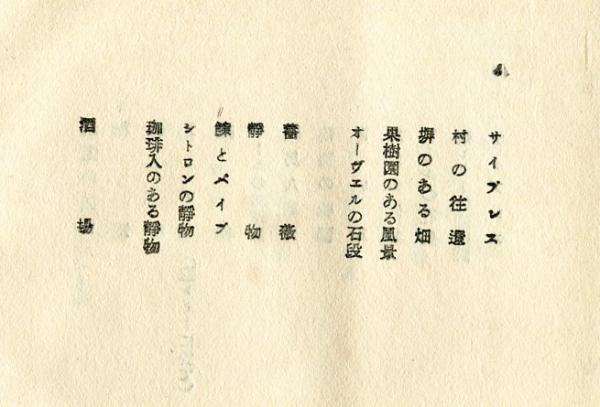 4
サイプレス
村の往還
塀のある畑
果樹園のある風景
オーヴエルの石段
薔薇
靜物
鰊とパイプ
シトロンの靜物
珈琲入のある靜物
酒場